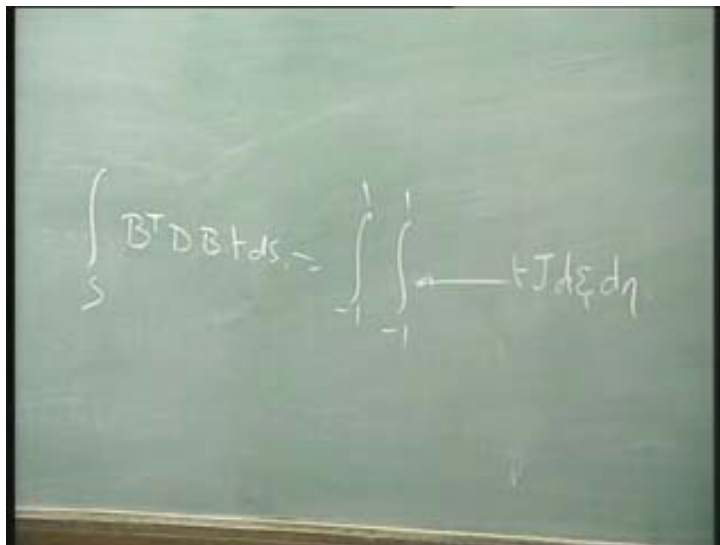 ∫_S BᵀDB t ds. = ∫_{-1}^{1} ∫_{-1}^{1} ——— t J dξ dη.